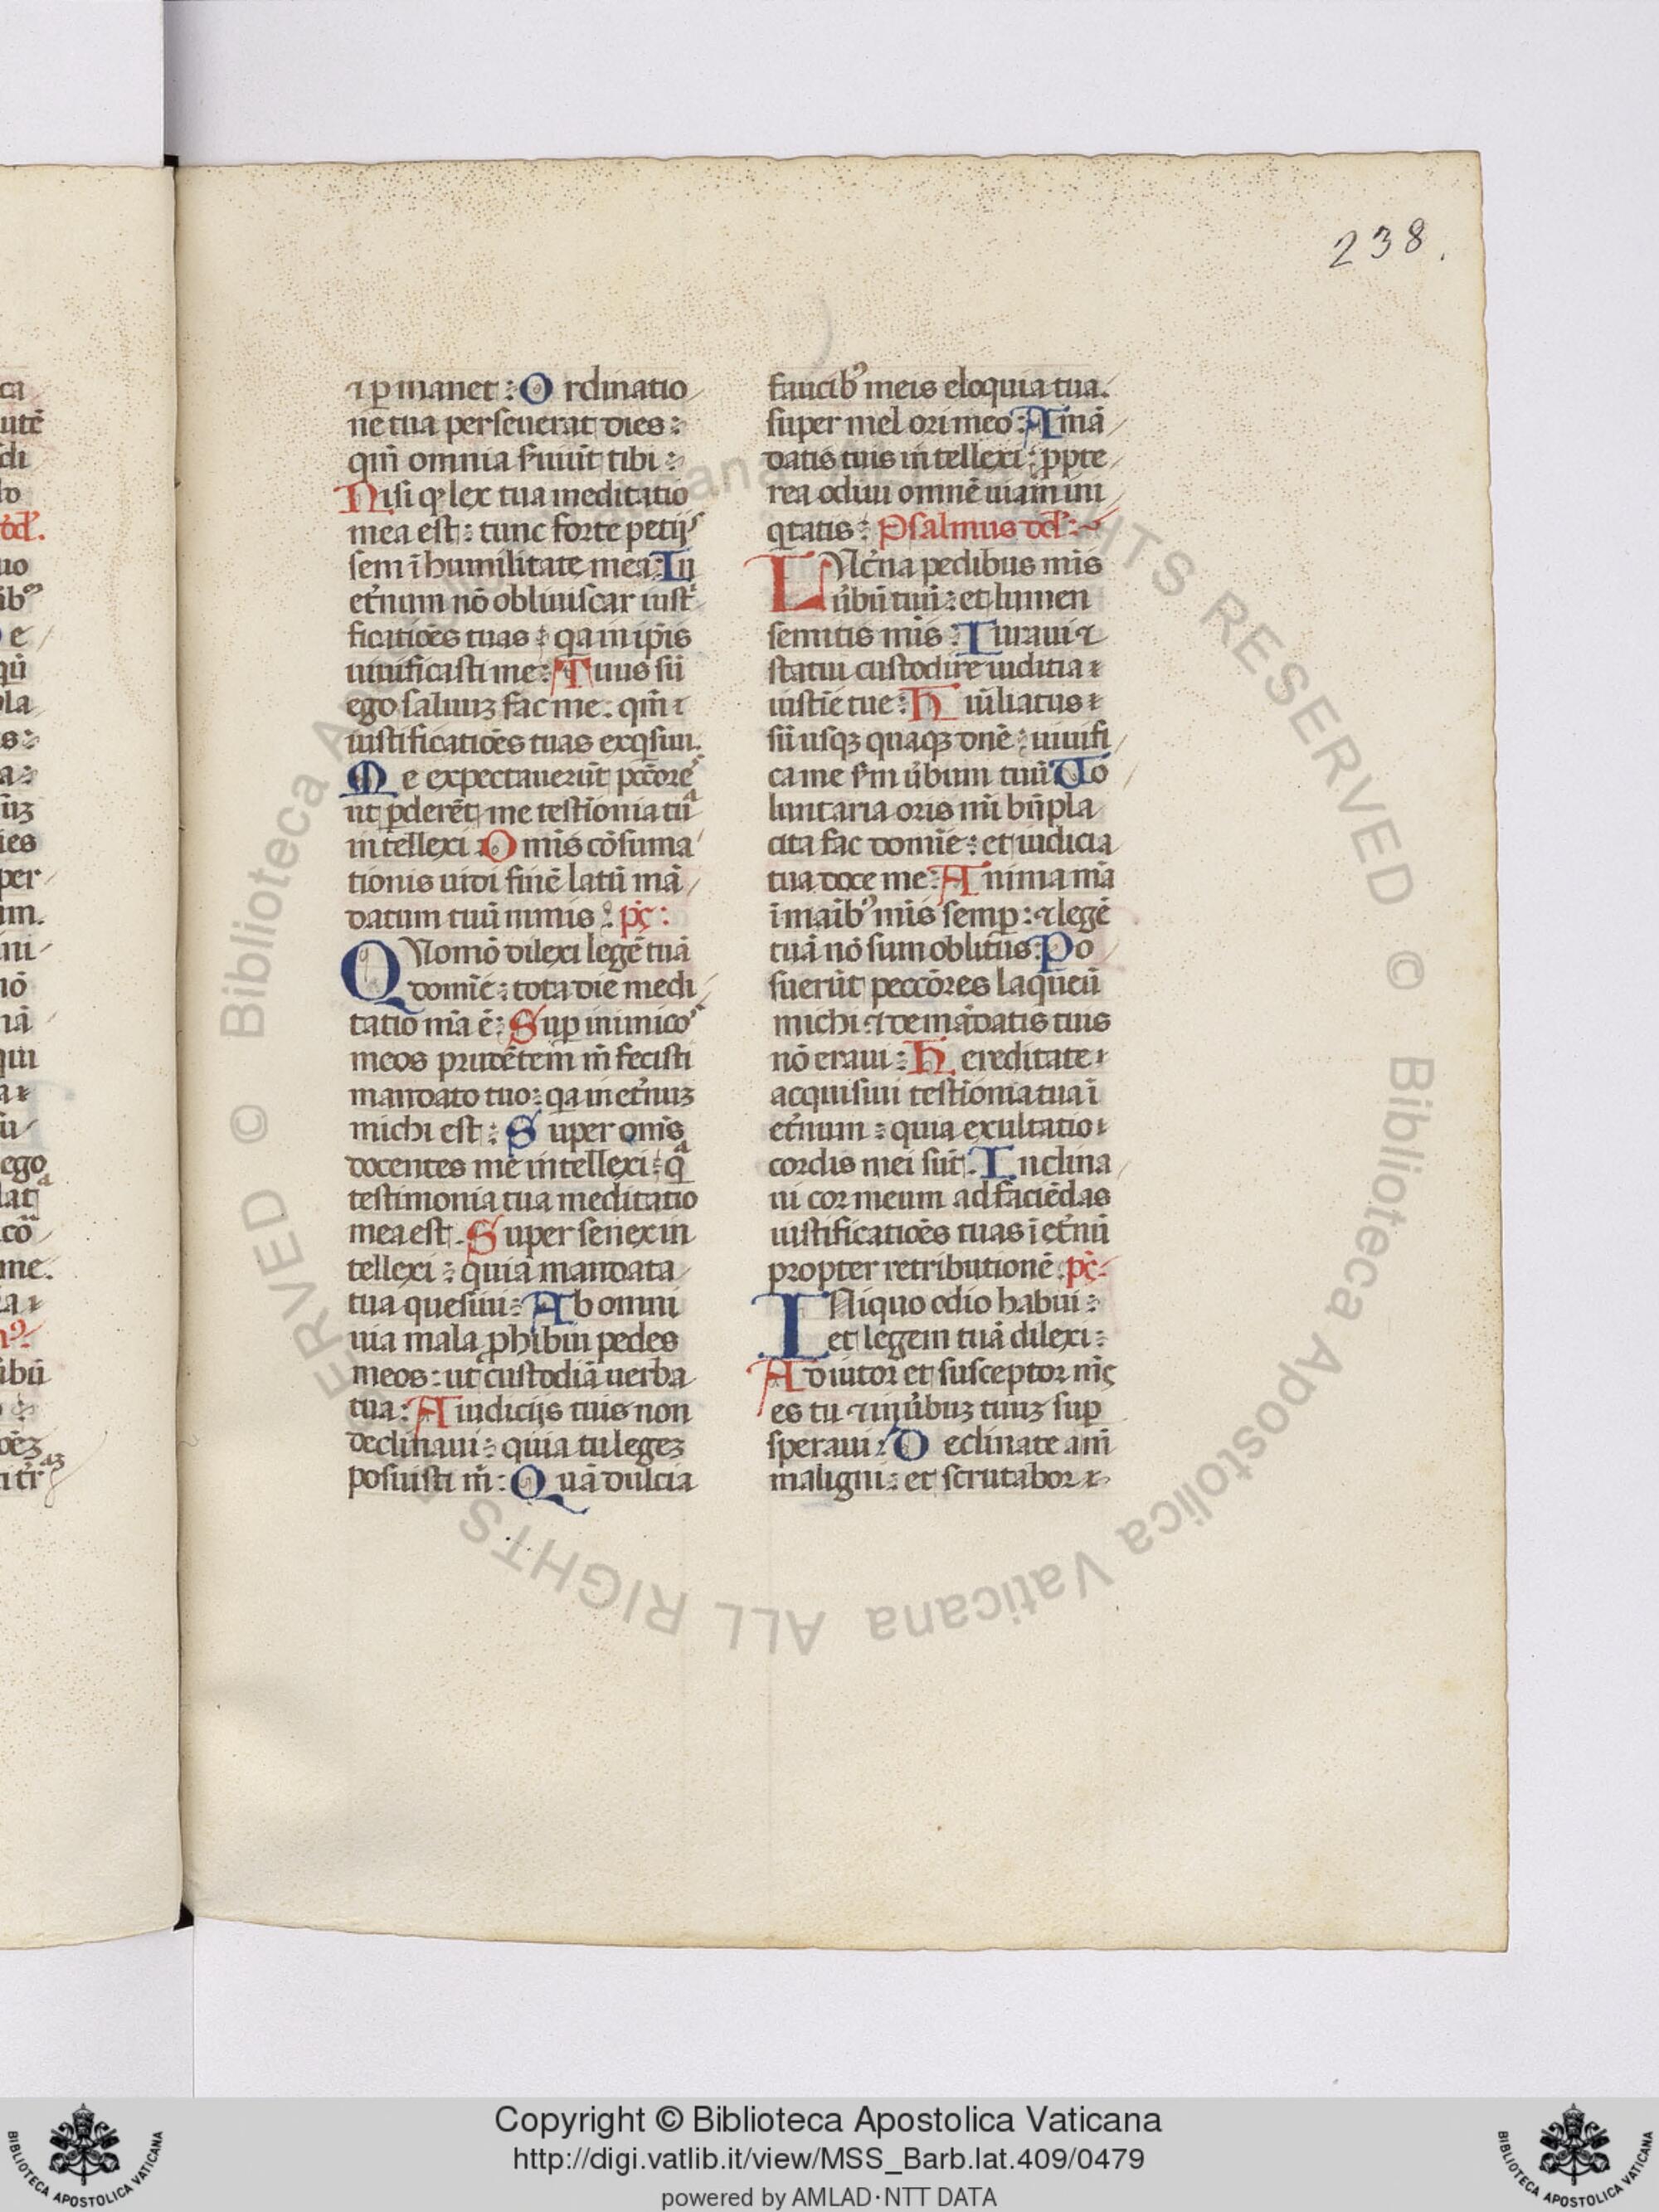 238.
⁊ ꝑmanet : Ordinatio
ne tua perseuerat dies :
qm̄ omnia ẜuiūt tibi :
Nisi ꝙ lex tua meditatio
mea est : tunc forte perijs
sem ī humilitate mea : In
et̉num nō obliuiscar iusti
ficatiōes tuas : qa in ip̄is
uiuificasti me : Tuus sū
ego saluuꝫ fac me . qm̄
iustificatiōes tuas exqsiui.
Me expectauerūt pcc̄ores
ut ꝑderēt me testīonia tua
intellexi : Omīs cōsuma
tionis uidi finē latū mā
datum tuū nimis : ps̄ :
QVomō dilexi legē tuā
domīe : tota die medi
tatio m̄a ē : Suꝑ inimicos
meos prudētem m̄ fecisti
mandato tuo : qa in et̉nuꝫ
michi est : Super om̄s
docentes me intellexi : qa
testimonia tua meditatio
mea est . Super senex in
tellexi : quia mandata
tua quesiui : Ab omni
uia mala ꝓhibui pedes
meos : ut custodiā uerba
tua : A iudicijs tuis non
declinaui : quia tu legeꝫ
posuisti m̄ : Quā dulcia
faucibꝰ meis eloquia tua.
super mel ori meo : A mā
datis tuis intellexi : ꝓpte
rea odiui omnē uiam ini
qtatis : Psalmus dd̄ :
LVc̉na pedibus mis
ủbū tuū : et lumen
semitis mīs : Iuraui ⁊
statui custodire iuditia
iustīe tue : Hūiliatus
sū usqꝫ quaqꝫ dn̄e : uiuifi
ca me ẜm ủbum tuū Uo
luntaria oris mī bn̄pla
cita fac domīe : et iudicia
tua doce me : Anima m̄a
ī maībꝰ mīs semꝑ : ⁊ legē
tuā nō sum oblitus : Po
suerūt peccōres laqueū
michi : ⁊ de mādatis tuis
nō eraui : Hereditate
acquisiui testīonia tua ī
et̉num : quia exultatio
cordis mei sūt . Inclina
ui cor meum ad faciēdas
iustificatiōes tuas ī et̉nū
propter retributionē . ps̄ :
INiquo odio habui :
et legem tuā dilexi :
Adiutor et susceptor m̄s
es tu ⁊ in ủbuꝫ tuuꝫ suꝑ
speraui : Declinate a m̄
maligni : et scrutabor
Copyright © Biblioteca Apostolica Vaticana
http://digi.vatlib.it/view/MSS_Barb.lat.409/0479
powered by AMLAD·NTT DATA